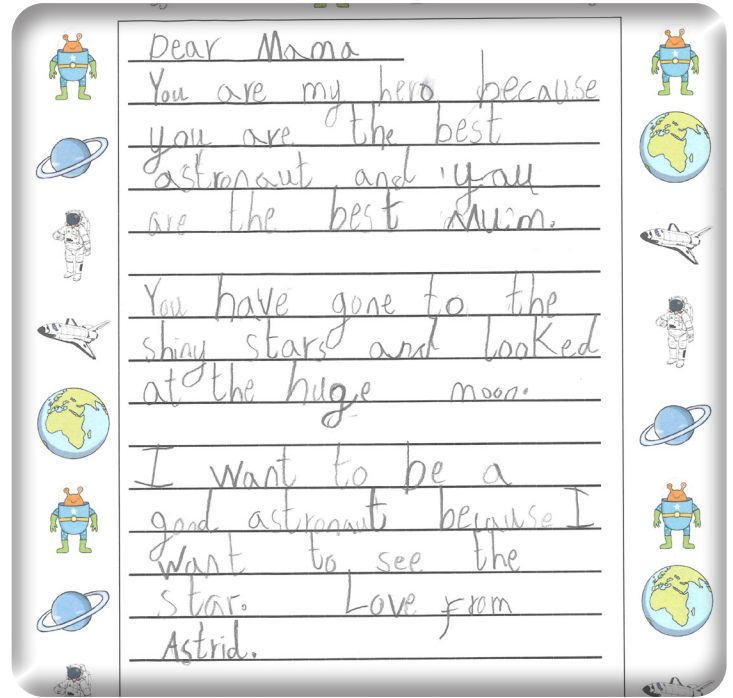 Dear Mama
You are my hero because
you are the best
astronaut and you
are the best Mum.
You have gone to the
shiny stars and looked
at the huge moon.
I want to be a
good astronaut because I
want to see the
star. Love from
Astrid.